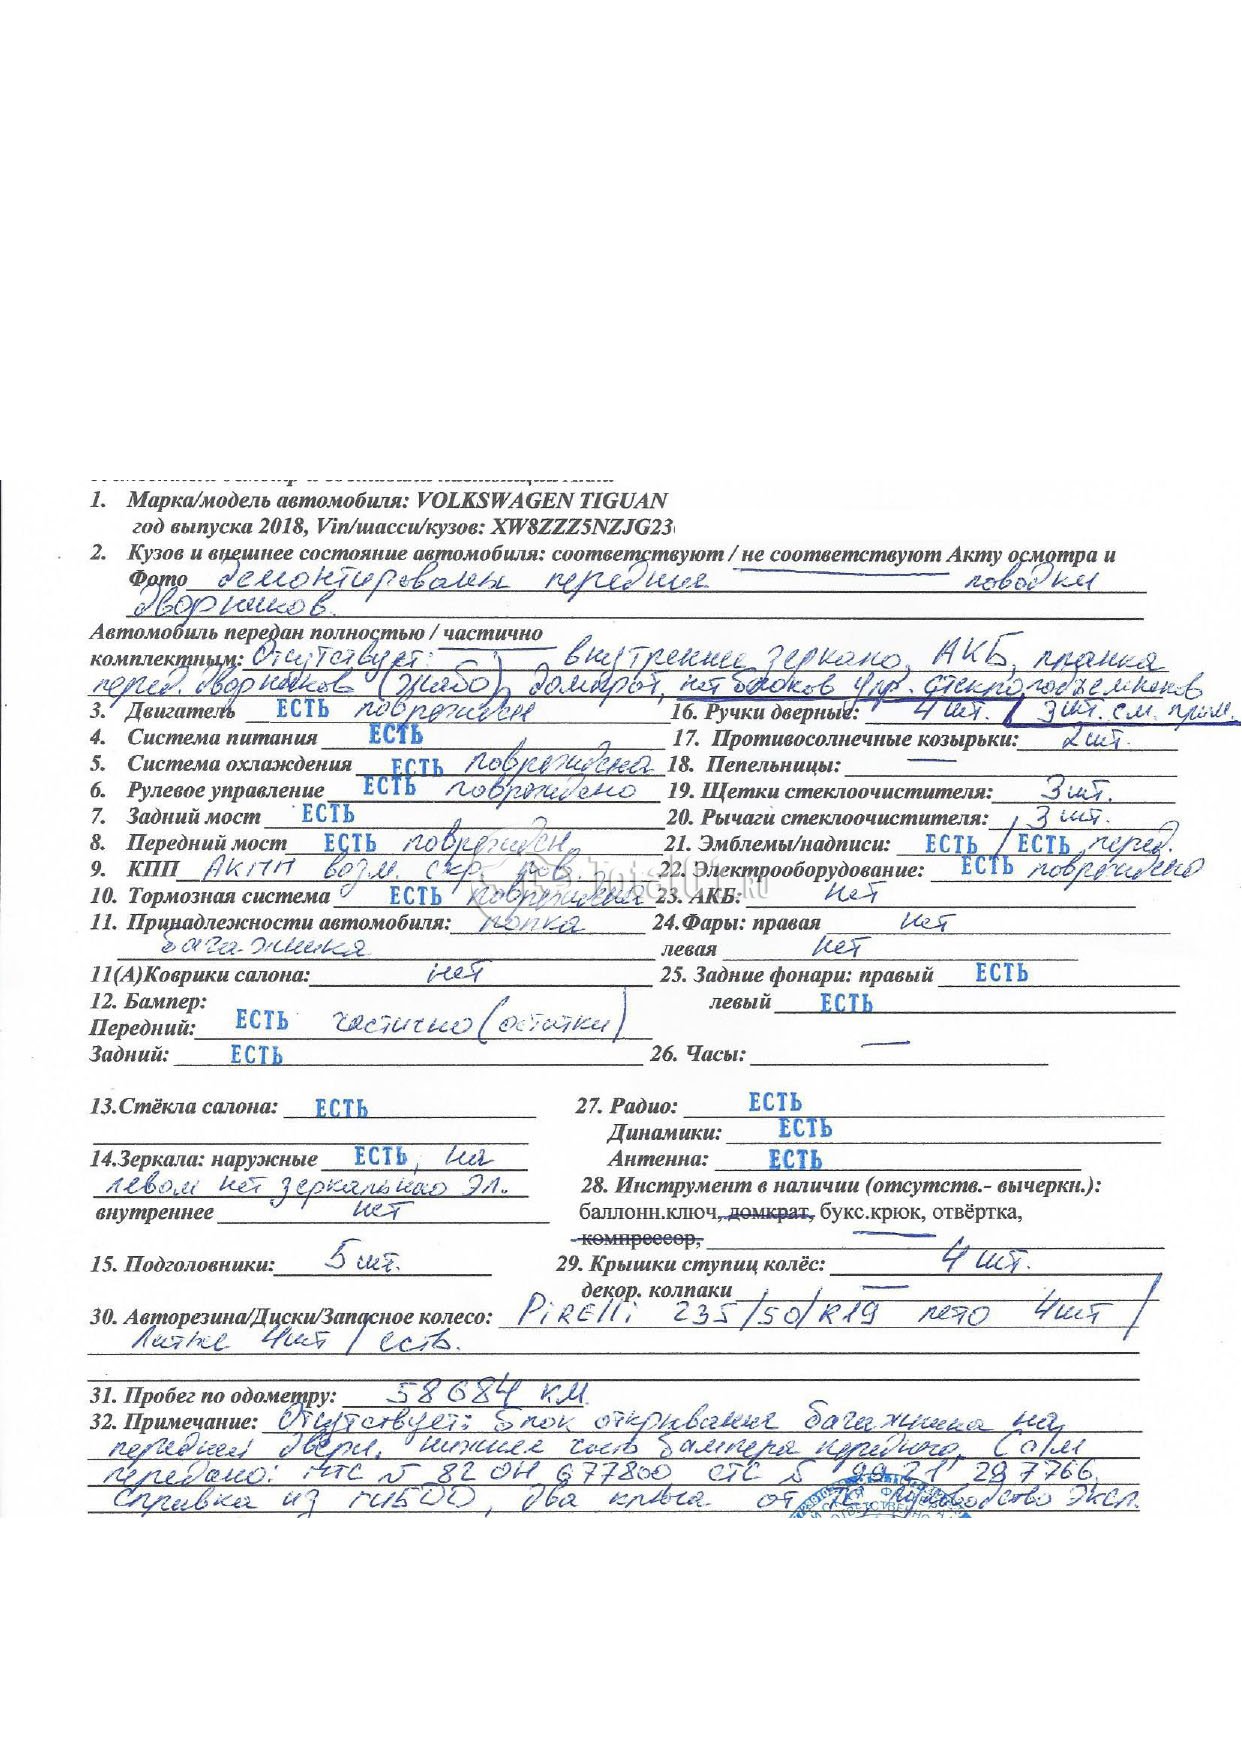 1. Марка/модель автомобиля: VOLKSWAGEN TIGUAN
год выпуска 2018, Vin/шасси/кузов: XW8ZZZ5NZJG23
2. Кузов и внешнее состояние автомобиля: соответствуют / не соответствуют Акту осмотра и
Фото демонтированы передние поводки
дворников.
Автомобиль передан полностью / частично
комплектным: Отсутствует: внутреннее зеркало, АКБ, планка
перед. дворников (жабо), домкрат, нет блоков упр. стеклоподъемников
3. Двигатель ЕСТЬ поврежден 16. Ручки дверные: 4 шт. / 3 шт. см. прим.
4. Система питания ЕСТЬ 17. Противосолнечные козырьки: 2 шт.
5. Система охлаждения ЕСТЬ повреждена 18. Пепельницы: —
6. Рулевое управление ЕСТЬ повреждено 19. Щетки стеклоочистителя: 3 шт.
7. Задний мост ЕСТЬ 20. Рычаги стеклоочистителя: 3 шт.
8. Передний мост ЕСТЬ поврежден 21. Эмблемы/надписи: ЕСТЬ / ЕСТЬ, перед.
9. КПП АКПП возм. скр. пов. 22. Электрооборудование: ЕСТЬ повреждено
10. Тормозная система ЕСТЬ повреждена 23. АКБ: нет
11. Принадлежности автомобиля: полка 24.Фары: правая нет
багажника левая нет
11(А)Коврики салона: нет 25. Задние фонари: правый ЕСТЬ
12. Бампер: левый ЕСТЬ
Передний: ЕСТЬ частично (остатки)
Задний: ЕСТЬ 26. Часы: —
13.Стёкла салона: ЕСТЬ 27. Радио: ЕСТЬ
Динамики: ЕСТЬ
14.Зеркала: наружные ЕСТЬ, на Антенна: ЕСТЬ
левом нет зеркально эл. 28. Инструмент в наличии (отсутств.- вычеркн.):
внутреннее нет баллонн.ключ, домкрат, букс.крюк, отвёртка,
компрессор,
15. Подголовники: 5 шт. 29. Крышки ступиц колёс: 4 шт.
декор. колпаки —
30. Авторезина/Диски/Запасное колесо: PiRELLi 235/50/R19 лето 4шт /
Литые 4шт / есть.
31. Пробег по одометру: 58684 км
32. Примечание: Отсутствует: блок открывания багажника на
передней двери, нижняя часть бампера переднего. С а/м
передано: ПТС № 82 ОН 677800 СТС № 99 21 297766,
справка из ГИБДД, два ключа от руководство эксп.